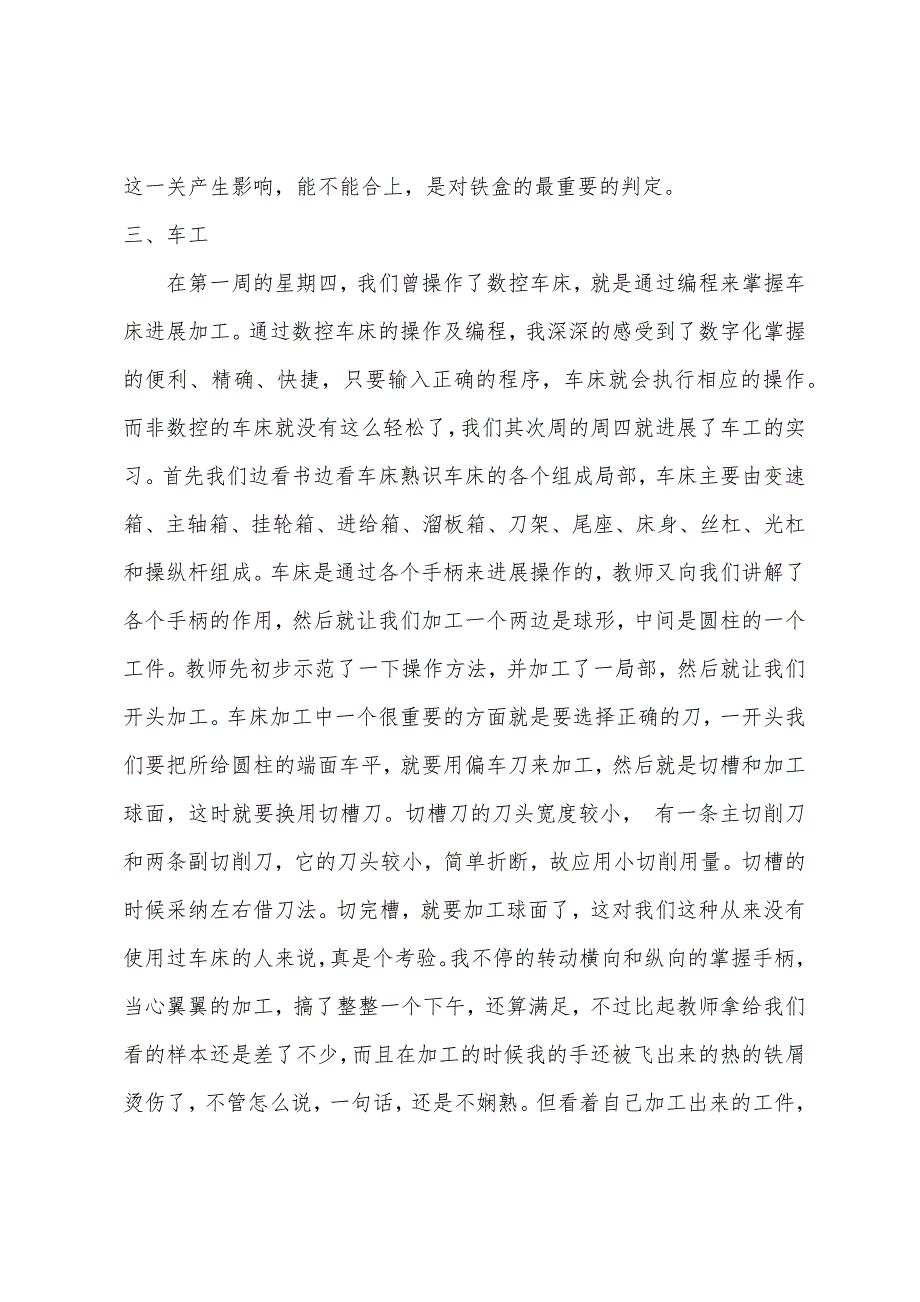 这一关产生影响，能不能合上，是对铁盒的最重要的判定。
三、车工
在第一周的星期四，我们曾操作了数控车床，就是通过编程来掌握车
床进展加工。通过数控车床的操作及编程，我深深的感受到了数字化掌握
的便利、精确、快捷，只要输入正确的程序，车床就会执行相应的操作。
而非数控的车床就没有这么轻松了，我们其次周的周四就进展了车工的实
习。首先我们边看书边看车床熟识车床的各个组成局部，车床主要由变速
箱、主轴箱、挂轮箱、进给箱、溜板箱、刀架、尾座、床身、丝杠、光杠
和操纵杆组成。车床是通过各个手柄来进展操作的，教师又向我们讲解了
各个手柄的作用，然后就让我们加工一个两边是球形，中间是圆柱的一个
工件。教师先初步示范了一下操作方法，并加工了一局部，然后就让我们
开头加工。车床加工中一个很重要的方面就是要选择正确的刀，一开头我
们要把所给圆柱的端面车平，就要用偏车刀来加工，然后就是切槽和加工
球面，这时就要换用切槽刀。切槽刀的刀头宽度较小， 有一条主切削刀
和两条副切削刀，它的刀头较小，简单折断，故应用小切削用量。切槽的
时候采纳左右借刀法。切完槽，就要加工球面了，这对我们这种从来没有
使用过车床的人来说，真是个考验。我不停的转动横向和纵向的掌握手柄，
当心翼翼的加工，搞了整整一个下午，还算满足，不过比起教师拿给我们
看的样本还是差了不少，而且在加工的时候我的手还被飞出来的热的铁屑
烫伤了，不管怎么说，一句话，还是不娴熟。但看着自己加工出来的工件，